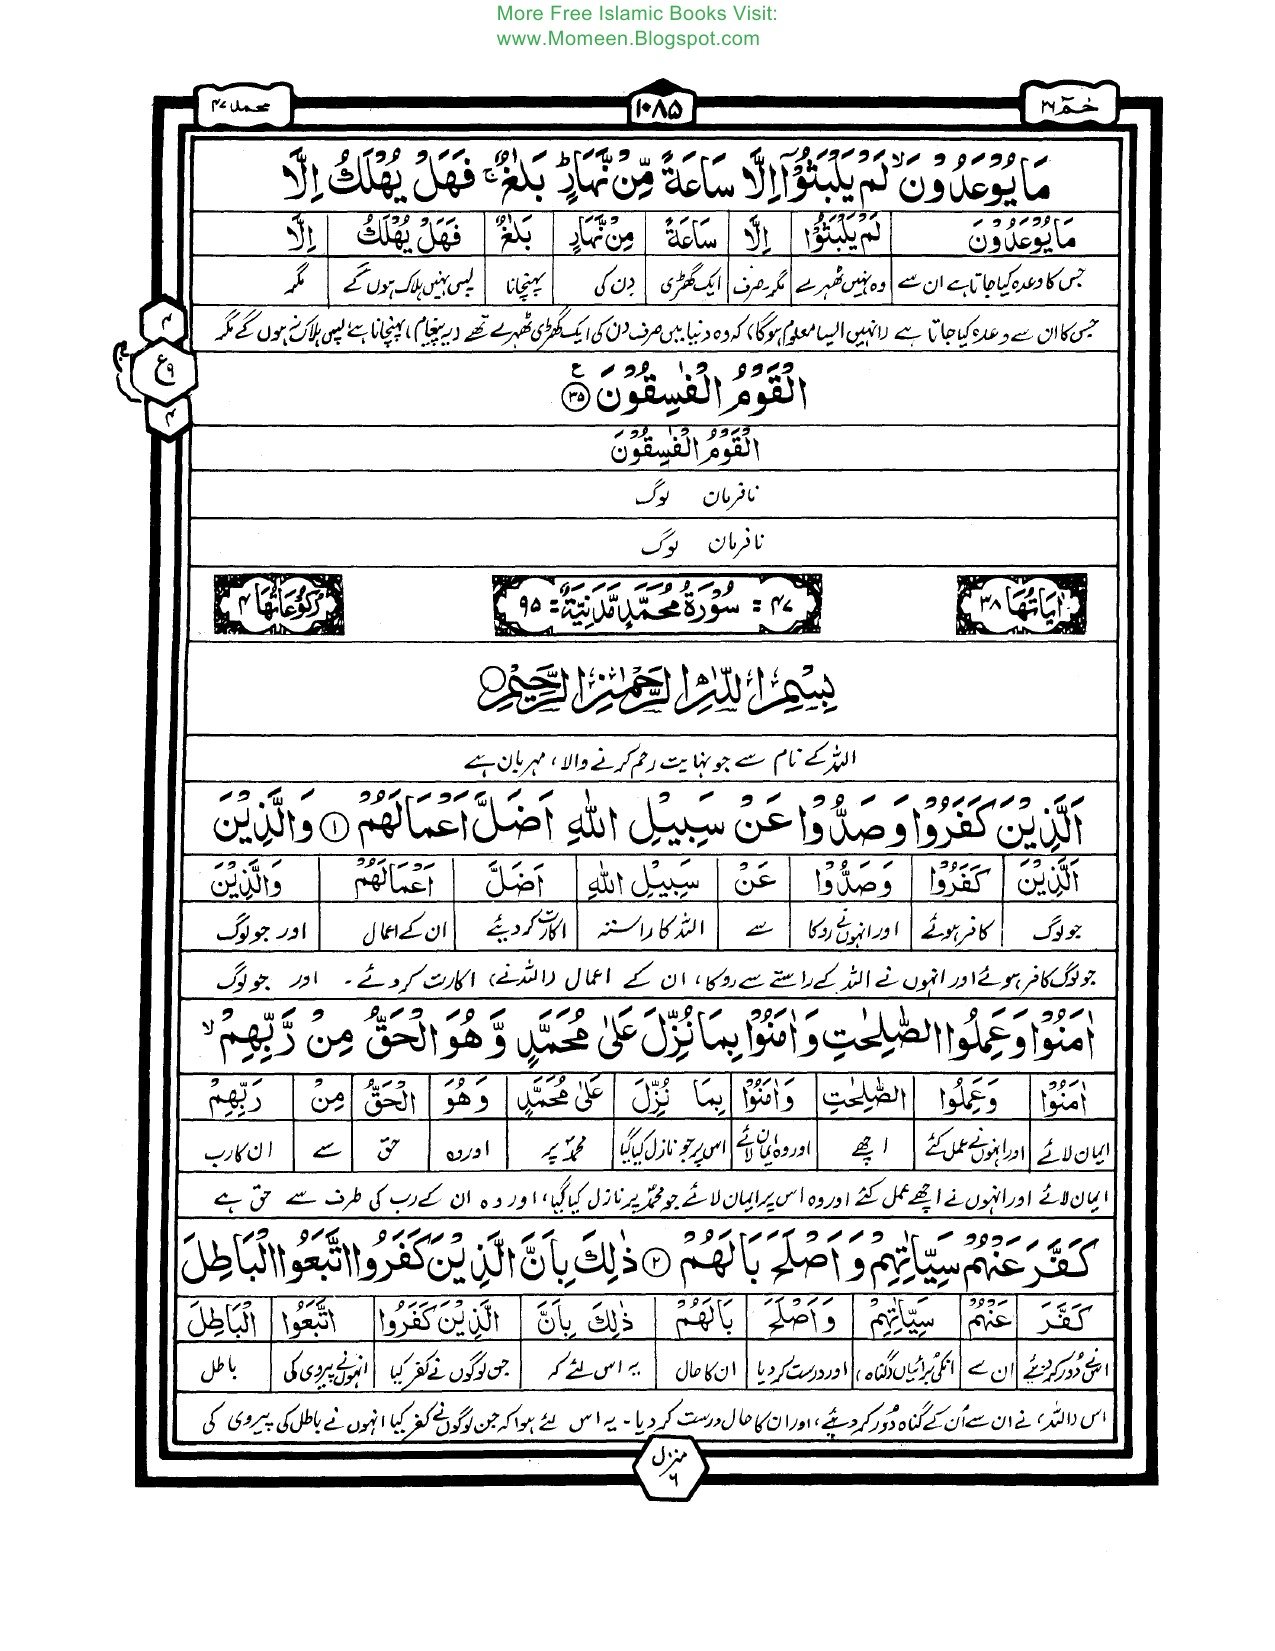 More Free Islamic Books Visit:
www.Momeen.Blogspot.com
حٰمٓ ۲۶
۱۰۸۵
محمد ۴۷
مَا يُوْعَدُوْنَ ۙ لَمْ يَلْبَثُوْٓا اِلَّا سَاعَةً مِّنْ نَّهَارٍ ؕ بَلٰغٌ ۚ فَهَلْ يُهْلَكُ اِلَّا
مَا يُوْعَدُوْنَ لَمْ يَلْبَثُوْٓا اِلَّا سَاعَةً مِنْ نَّهَارٍ بَلٰغٌ فَهَلْ يُهْلَكُ اِلَّا
جس کا وعدہ کیا جاتا ہے ان سے وہ نہیں ٹھہرے مگر صرف ایک گھڑی دن کی پہنچانا پس نہیں ہلاک ہوں گے مگر
جس کا ان سے وعدہ کیا جاتا ہے (انہیں ایسا معلوم ہوگا) کہ وہ دنیا میں صرف دن کی ایک گھڑی ٹھہرے تھے (یہ پیغام) پہنچانا ہے پس ہلاک نہ ہوں گے مگر
۴
ع ۹
۴
الْقَوْمُ الْفٰسِقُوْنَ ع ۳۵
الْقَوْمُ الْفٰسِقُوْنَ
نافرمان لوگ
نافرمان لوگ
اٰيَاتُهَا ۳۸
۴۷ = سُوْرَةُ مُحَمَّدٍ مَّدَنِيَّةٌ = ۹۵
رُكُوْعَاتُهَا ۴
بِسْمِ اللّٰهِ الرَّحْمٰنِ الرَّحِيْمِ
اللہ کے نام سے جو نہایت رحم کرنے والا، مہربان ہے
اَلَّذِيْنَ كَفَرُوْا وَصَدُّوْا عَنْ سَبِيْلِ اللّٰهِ اَضَلَّ اَعْمَالَهُمْ ۱ وَالَّذِيْنَ
اَلَّذِيْنَ كَفَرُوْا وَصَدُّوْا عَنْ سَبِيْلِ اللّٰهِ اَضَلَّ اَعْمَالَهُمْ وَالَّذِيْنَ
جو لوگ کافر ہوئے اور انہوں نے روکا سے اللہ کا راستہ اکارت کر دیئے ان کے اعمال اور جو لوگ
جو لوگ کافر ہوئے اور انہوں نے اللہ کے راستے سے روکا، ان کے اعمال (اللہ نے) اکارت کر دئے۔ اور جو لوگ
اٰمَنُوْا وَعَمِلُوا الصّٰلِحٰتِ وَاٰمَنُوْا بِمَا نُزِّلَ عَلٰى مُحَمَّدٍ وَّهُوَ الْحَقُّ مِنْ رَّبِّهِمْ ۙ
اٰمَنُوْا وَعَمِلُوا الصّٰلِحٰتِ وَاٰمَنُوْا بِمَا نُزِّلَ عَلٰى مُحَمَّدٍ وَهُوَ الْحَقُّ مِنْ رَبِّهِمْ
ایمان لائے اور انہوں نے عمل کئے اچھے اور وہ ایمان لائے اس پر جو نازل کیا گیا محمدؐ پر اور وہ حق سے ان کا رب
ایمان لائے اور انہوں نے اچھے عمل کئے اور وہ اس پر ایمان لائے جو محمدؐ پر نازل کیا گیا، اور وہ ان کے رب کی طرف سے حق ہے
كَفَّرَ عَنْهُمْ سَيِّاٰتِهِمْ وَاَصْلَحَ بَالَهُمْ ۲ ذٰلِكَ بِاَنَّ الَّذِيْنَ كَفَرُوا اتَّبَعُوا الْبَاطِلَ
كَفَّرَ عَنْهُمْ سَيِّاٰتِهِمْ وَاَصْلَحَ بَالَهُمْ ذٰلِكَ بِاَنَّ الَّذِيْنَ كَفَرُوا اتَّبَعُوا الْبَاطِلَ
اس نے دُور کر دئے ان سے انکی بُرائیاں (گناہ) اور درست کر دیا ان کا حال یہ اس لئے کہ جن لوگوں نے کفر کیا انہوں نے پیروی کی باطل
اس (اللہ) نے ان سے اُن کے گناہ دُور کر دیئے، اور ان کا حال درست کر دیا۔ یہ اس لئے ہوا کہ جن لوگوں نے کفر کیا انہوں نے باطل کی پیروی کی
منزل ۶